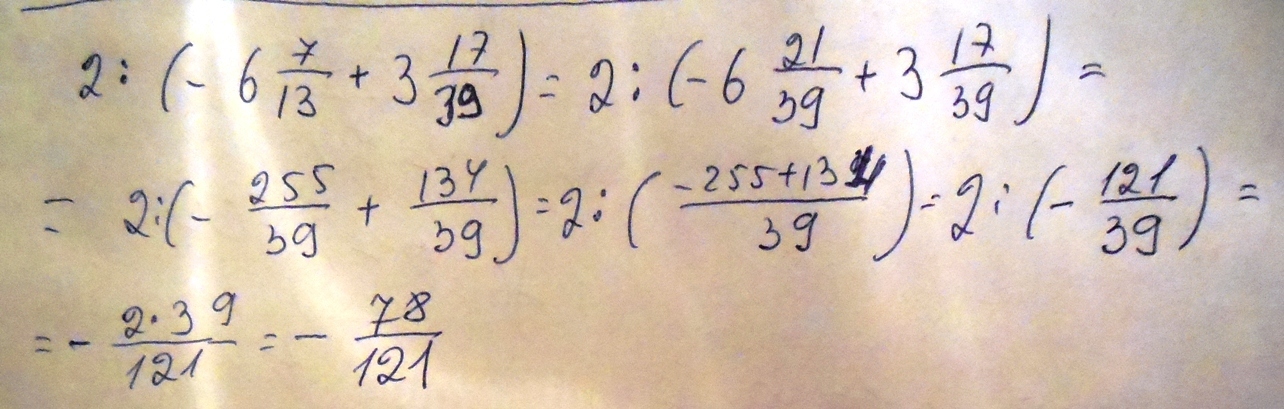 2 : (- 6 7/13 + 3 17/39) = 2 : (-6 21/39 + 3 17/39) =
= 2:(- 255/39 + 134/39) = 2 : (-255+134/39) = 2 : (- 121/39) =
= - 2·39/121 = - 78/121